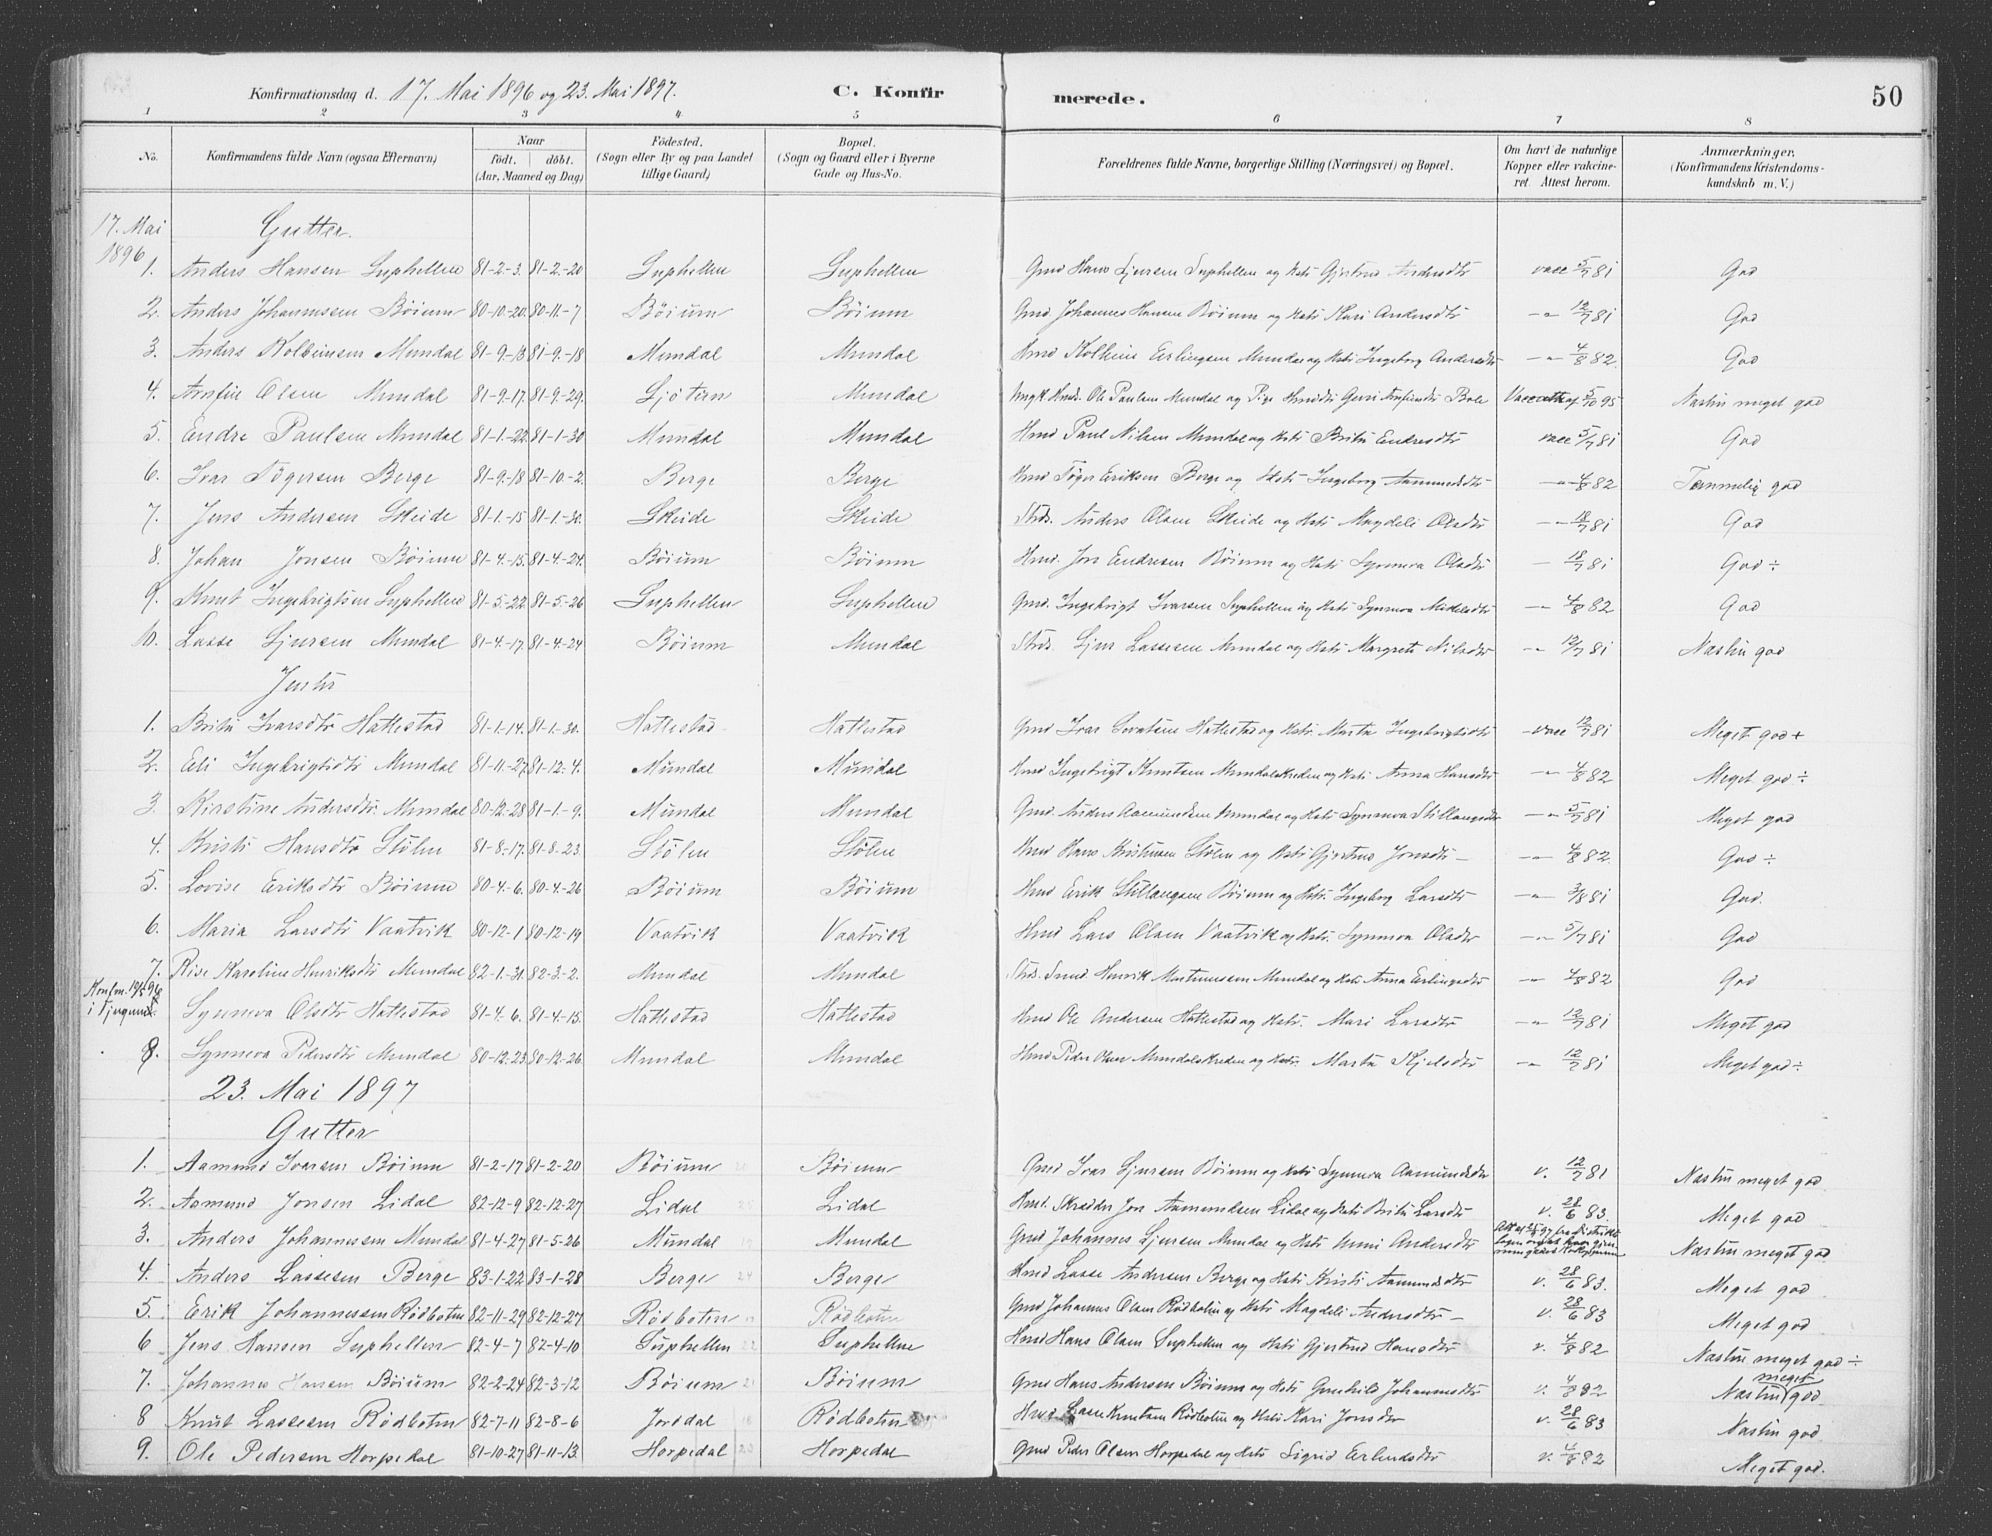 Konfirmationsdag d. 17. Mai 1896 og 23. Mai 1897. C. Konfirmerede. 50
1 2 3 4 5 6 7 8
No. Konfirmandens fulde Navn (ogsaa Efternavn) Naar født. døbt. (Aar, Maaned og Dag) Fødested. (Sogn eller By og paa Landet tillige Gaard) Bopæl. (Sogn og Gaard eller i Byerne Gade og Hus-No. Forældrenes fulde Navne, borgerlige Stilling (Næringsvei) og Bopæl. Om havt de naturlige Kopper eller vakcineret. Attest herom. Anmærkninger, (Konfirmandens Kristendomskundskab m. V.)
17. Mai 1896 Gutter.
1. Anders Hansen Suphellen 81-2-3. 81-2-20 Suphellen Suphellen Gmd Hans Sjursen Suphellen og Kstr Gjertrud Andersdtr vacc 5/7 81 God
2. Anders Johannessen Bøium 80-10-20. 80-11-7 Bøium Bøium Gmd Johannes Hansen Bøium og Kstr Kari Andersdtr -"- 12/7 81 God
3. Anders Kolbeinsen Mundal 81-9-13 81-9-18 Mundal Mundal Hmd Kolbein Erlingsen Mundal og Kstr Ingeborg Andersdtr -"- 4/8 82. God
4. Arnfin Olsen Mundal 81-9-17. 81-9-29. Mundal Ungk Ole Paulsen Mundal og Pige Arnfinsdtr Vacc 5/10 95 Næsten meget god
5. Endre Paulsen Mundal 81-1-22 81-1-30 Mundal Mundal Hmd Paul Nilsen Mundal og Kstr Brita Endresdtr vacc 5/7 81 God
6. Ivar Tøgersen Berge 81-9-18 81-10-2. Berge Berge Hmd Tøger Eriksen Berge og Kstr Ingeborg Aamundsdtr -"- 4/8 82 Temmelig god
7. Jens Andersen Skeide 81-1-15 81-1-30. Skeide Skeide Anders Olsen Skeide og Kstr Magdeli Olsdtr -"- 18/7 81 God
8. Johan Jonsen Bøium 81-4-15. 81-4-24. Bøium Bøium Hmd. Jon Endresen Bøium og Kstr Synneva Olsdtr - 18/7 81 God ÷
9. Knut Ingebrigtsen Suphellen 81-5-22 81-5-26 Suphellen Suphellen Gmd. Ingebrigt Ivarsen Suphellen og Kstr Synneva Mikkelsdtr -"- 4/8 82 God
10. Lasse Sjursen Mundal 81-4-17. 81-4-24 Bøium Mundal Sjur Lassesen Mundal og Kstr Margrete Nilsdtr -"- 12/7 81 Næsten god
Jenter
1. Brita Ivarsdtr Hattestad 81-1-14. 81-1-30. Hattestad Hattestad Gmd Ivar Hattestad og Kstr. Marta Ingebrigtsdtr - vacc 12/7 81 Meget god +
2. Eli Ingebrigtsdtr Mundal 81-11-27 81-12-4. Mundal Mundal Hmd Ingebrigt Knutsen Mundalskreden og Kstr Anna Hansdtr -"- 4/8 82 Meget god ÷
3. Kirstine Andersdtr. Mundal 80-12-28 81-1-9. Mundal Mundal Gmd. Anders Aamundsen Mundal og Kstr Synneva Stillaugsdtr -"- 5/7 81 Meget god
4. Kristi Hansdtr Stølen 81-8-17. 81-8-23. Stølen Stølen Hmd Hans Kristensen Stølen og Kstr Gjertrud Jonsdtr - -"- 4/8 82. God ÷
5. Lovise Eriksdtr Bøium 80-4-6. 80-4-26 Bøium Bøium Hmd Erik Stillaugsen Bøium og Kstr. Ingeborg Larsdtr -"- 3/8 81 God.
6. Maria Larsdtr Vaatvik 80-12-1 80-12-19 Vaatvik Vaatvik Hmd Lars Olsen Vaatvik og Kstr. Synneva Olsdtr -"- 5/7 81 God
7. Rise Karoline Henriksdtr Mundal 82-1-31. 82-3-2. Mundal Mundal Henrik Martinussen Mundal og Kstr Anna Erlingsdtr -"- 4/8 82 God
Konfm. 10/5 96 i Synneva Olsdtr Hattestad 81-4-6. 81-4-15. Hattestad Hattestad Hmd Ole Andersen Hattestad og Kstr. Mari Larsdtr -"- 12/7 81 Meget god
8. Synneva Pedersdtr Mundal 80-12-23. 80-12-26. Mundal Mundal Hmd Peder Olsen Mundalskreden og Kstr. Marta Kjelsdtr -"- 12/7 81 Meget god ÷
23. Mai 1897
Gutter
1. Aamund Ivarsen Bøium 81-2-17 81-2-20 Bøium Bøium Gmd Ivar Sjursen Bøium og Kstr Synneva Aamundsdtr v. 12/7 81 Næsten meget god
2. Aamund Jonsen Lidal 82-12-9 82-12-27 Lidal Lidal Hmd. Skrædder Jon Aamundsen Lidal og Kstr Brita Larsdtr v. 28/6 83. Meget god
3. Anders Johannessen Mundal 81-4-27 81-5-26 Mundal Mundal Gmd Johannes Sjursen Mundal og Kstr Unni Andersdtr Næsten meget god
4. Anders Lassesen Berge 83-1-22 83-1-28 Berge Berge Hmd Lasse Andersen Berge og Kstr Kristi Aamundsdtr v. 28/6 83. Meget god
5. Erik Johannessen Rødbotten 82-11-29 82-12-27 Rødbotten Rødbotten Gmd Johannes Olsen Rødbotten og Kstr Magdeli Andersdtr - v. 28/6 83 Meget god
6 Jens Hansen Suphellen 82-4-7 82-4-10 Suphellen Suphellen Hmd Hans Olsen Suphellen og Kstr. Gjertrud Hansdtr v. 4/8 82 Næsten meget god ÷
7. Johannes Hansen Bøium 82-2-24 82-3-12 Bøium Bøium Gmd Hans Andersen Bøium og Kstr Gunhild Johannesdtr v. 4/8 82 Næsten meget god
8 Knut Lassesen Rødbotten 82-7-11 82-8-6 Jordal Rødbotten Hmd Lasse Knutsen Rødbotten og Kstr Kari Jonsdtr v. 28/6 83 Næsten god
9. Ole Pedersen Horpedal 81-10-27 81-11-13. Horpedal Horpedal Gmd Peder Olsen Horpedal og Kstr Sigrid Erlendsdtr v. 4/8 82 Meget god.